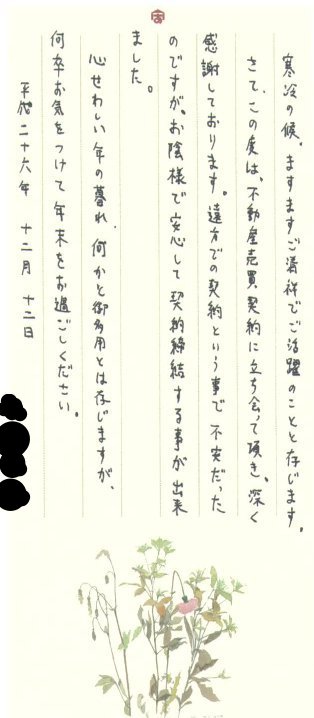 寒冷の候、ますますご清祥でご活躍のことと存じます。
さて、この度は、不動産売買契約に立ち会って頂き、深く
感謝しております。遠方での契約という事で不安だった
のですが、お陰様で安心して契約締結する事が出来
ました。
心せわしい年の暮れ、何かと御多用とは存じますが、
何卒お気をつけて年末をお過ごしください。
平成二十六年 十二月 十二日